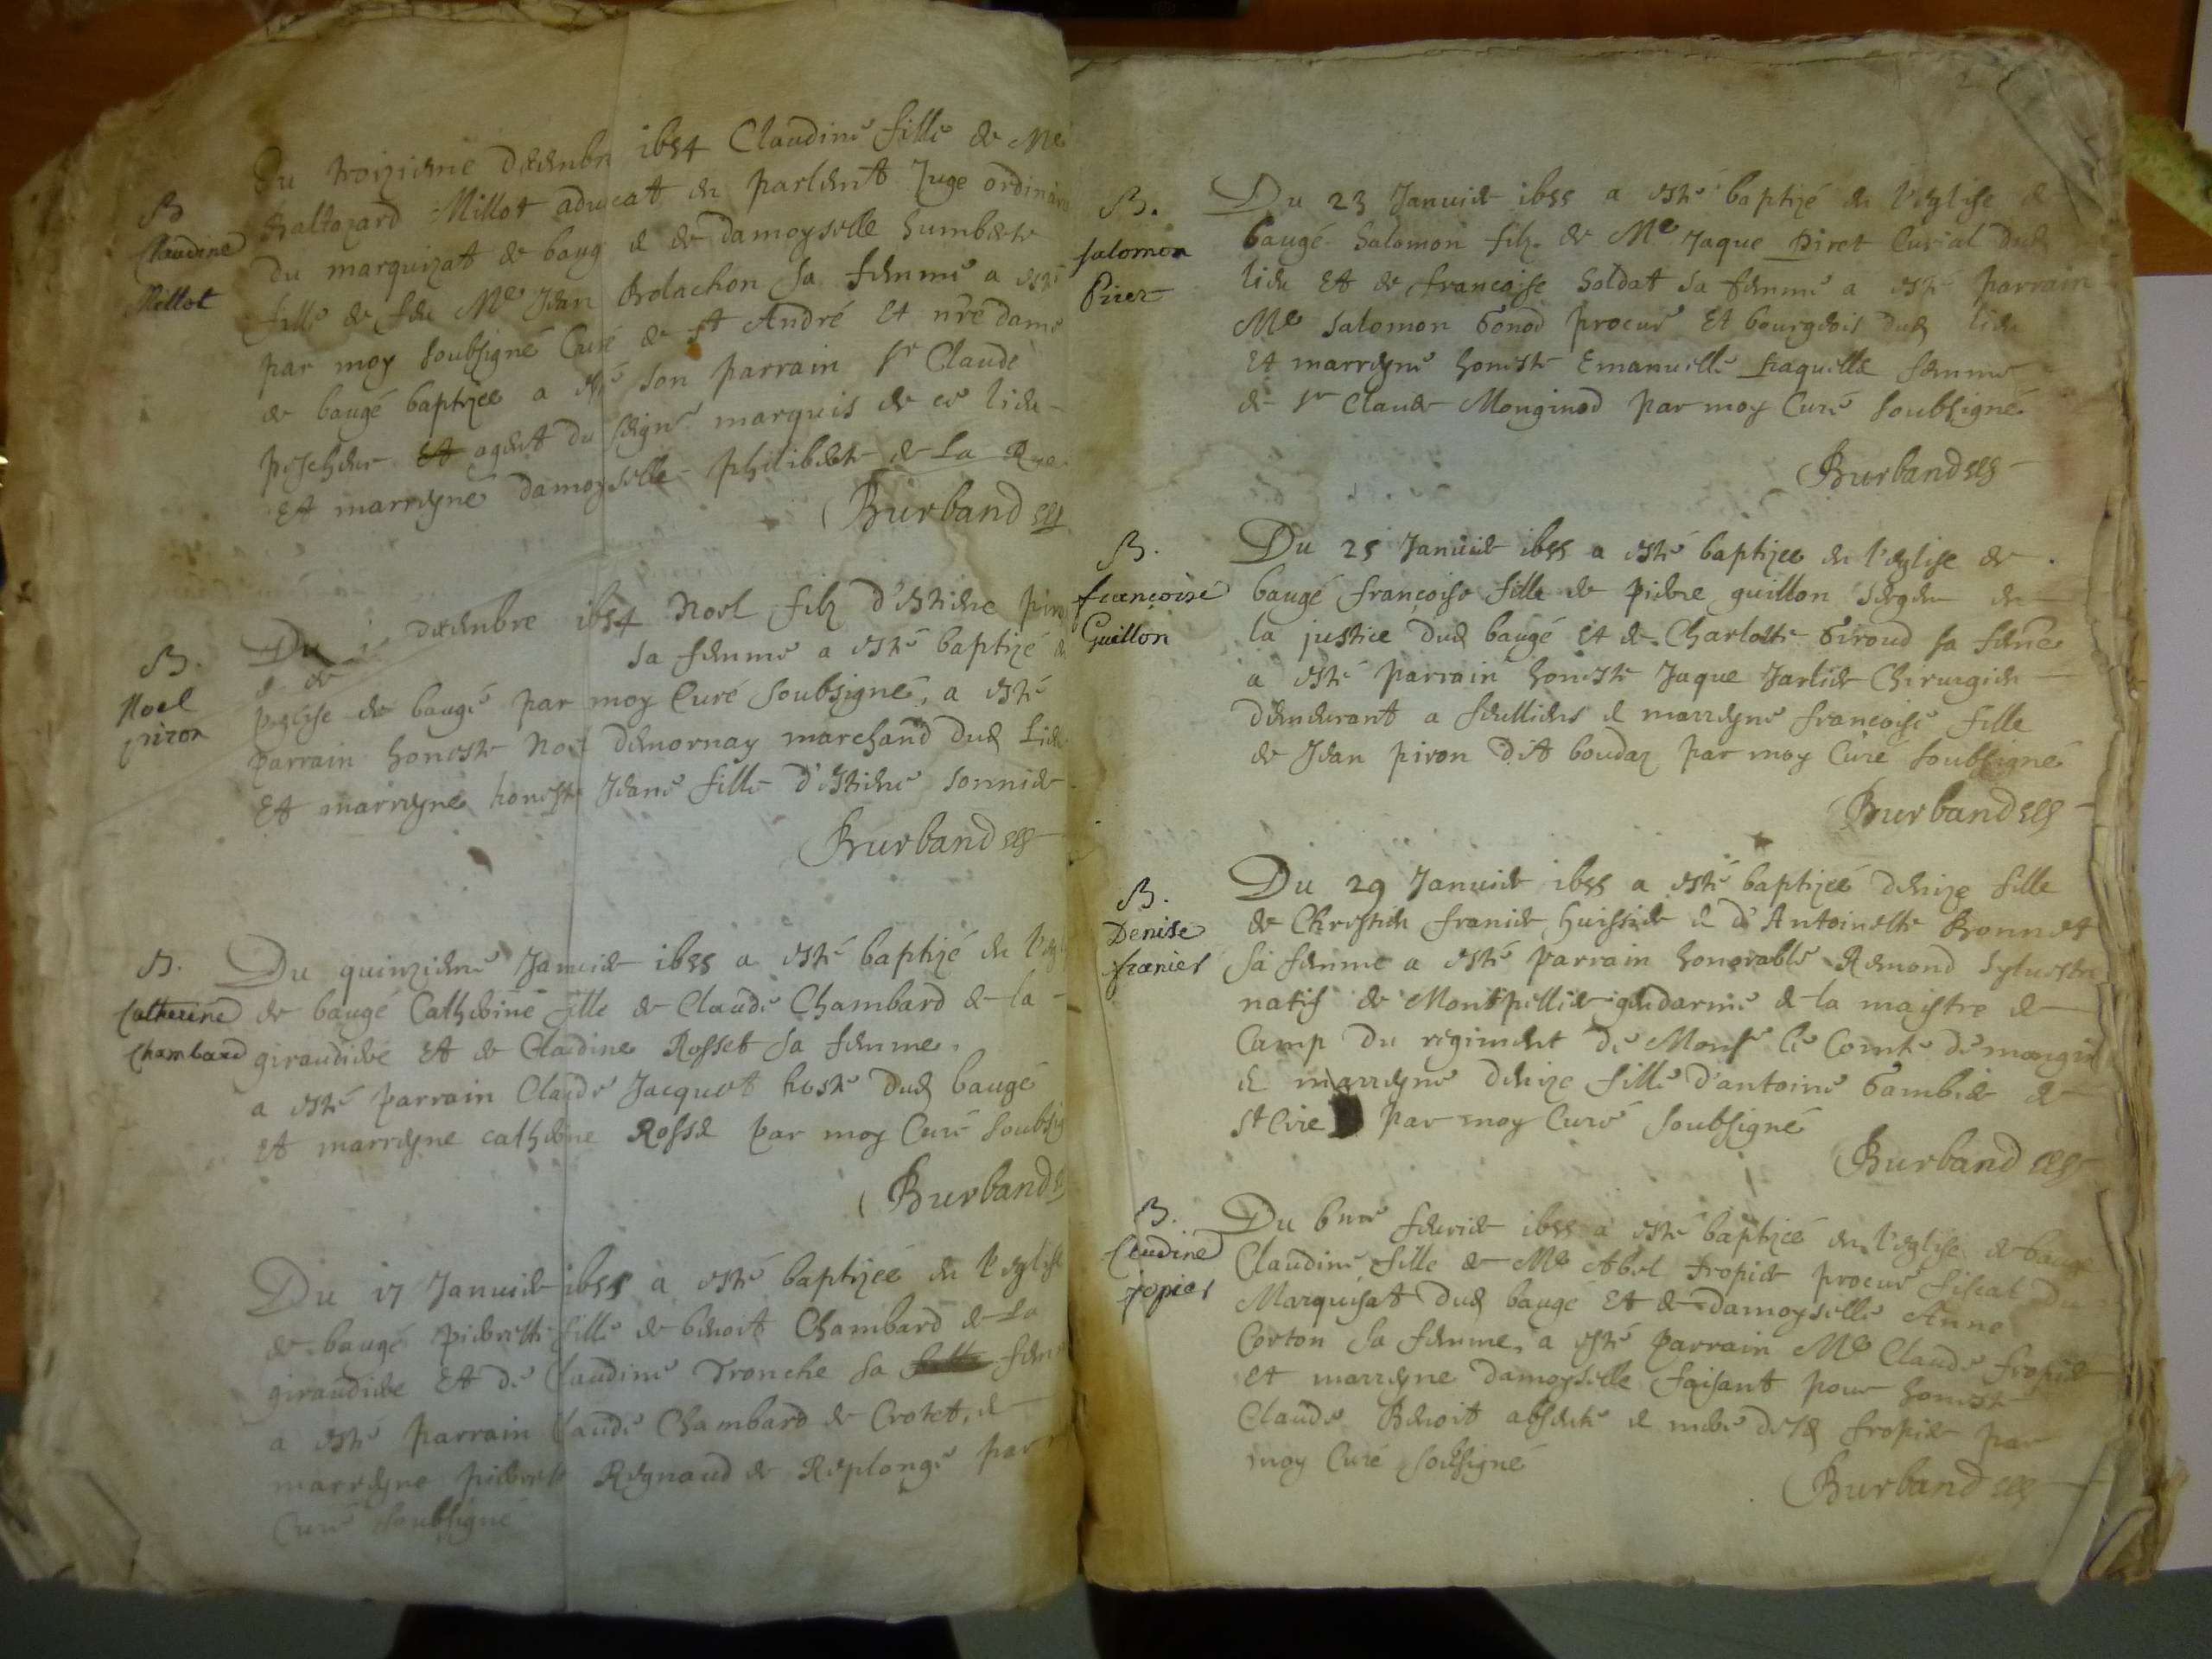 B
Claudine
Millot
Du troizieme decembre 1654 Claudine fille de Me
Baltazard Millot aducat en parlent Juge ordinaire
du marquizat de baug e de damoyselle humberte
fille de feu Me Jean Bolachon sa femme a esté
par moy soubsigné Curé de st André Et nre dame
de baugé baptizee a esté son parrain sr Claude
pescheur agent du seignr marquis de ce lieu
Et marreyne damoyselle philiberte de La Rue
Burband
B.
Noel
piron
Du decembre 1654 Noel filz d'estiene piron
e de sa femme a esté baptizé en
leglise de baugé par moy Curé soubsigné, a esté
parrain honeste Noel demornay marchand dud Lieu
Et marreyne honeste Jeane fille d'estiene sonnier
Burband
B.
Catherine
Chambard
Du quinzieme Januier 1655 a esté baptizé en l'eglise
de baugé Catherine fille de Claude Chambard de la
giraudiere Et de Claudine Rosset sa femme,
a esté parrain Claude Jacquet hoste dud baugé
Et marreyne catherine Rosse par moy Curé soubsig
Burband
Du 17 Januier 1655 a esté baptizee en l'eglise
de baugé pierrette fille de benoit Chambard de La
giraudiere Et de Claudine Tronche sa femme
a esté parrain Claude Chambard de Crotet, e
marreyne pierrette Regnaud de Replonge par
Curé soubsigné
B.
salomon
Piret
Du 23 Januier 1655 a esté baptizé en l'eglise de
baugé Salomon filz de Me Jaque Piret Curial dud
lieu Et de francoise Soldat sa femme a esté parrain
Me Salomon Gonod procur Et bourgeois dud lieu
Et marreyne honeste Emanuelle femme
de sr Claude Monginod par moy Curé soubsigné
Burband
B.
françoise
Guillon
Du 25 Januier 1655 a esté baptizee en l'eglise de
baugé françoise fille de pierre guillon sergen en
la justice dud baugé Et de Charlotte Giroud sa feme
a esté parrain honeste Jaque Jarlier Chirurgien
demeurant a feilliens e marreyne francoise fille
de Jean piron dit boudaz par moy Curé soubsigné
Burband
B.
Denise
franier
Du 29 Januier 1655 a esté baptizeé denize fille
de Chrestien franier huissier e d'Antoinette Bonnet
sa femme a esté parrain honorable Remond syluestre
natif de Montpellier gendarme de la maistre de
Camp du regiment de Monsr le Comte de
e marreyne denize fille d'antoine Gambier de
st Cire par moy Curé soubsigné
Burband
B.
Claudine
fropier
Du 6me feurier 1655 a esté baptizeé en l'eglise de baugé
Claudine fille de Me Abel fropier procur fiscal du
Marquisat dud baugé Et de damoyselle Anne
Corton sa femme, a esté parrain Me Claude fropier
Et marreyne damoyselle faisant pour honeste
Claude Benoit absente e mere fropier par
moy Curé soubsigné
Burband